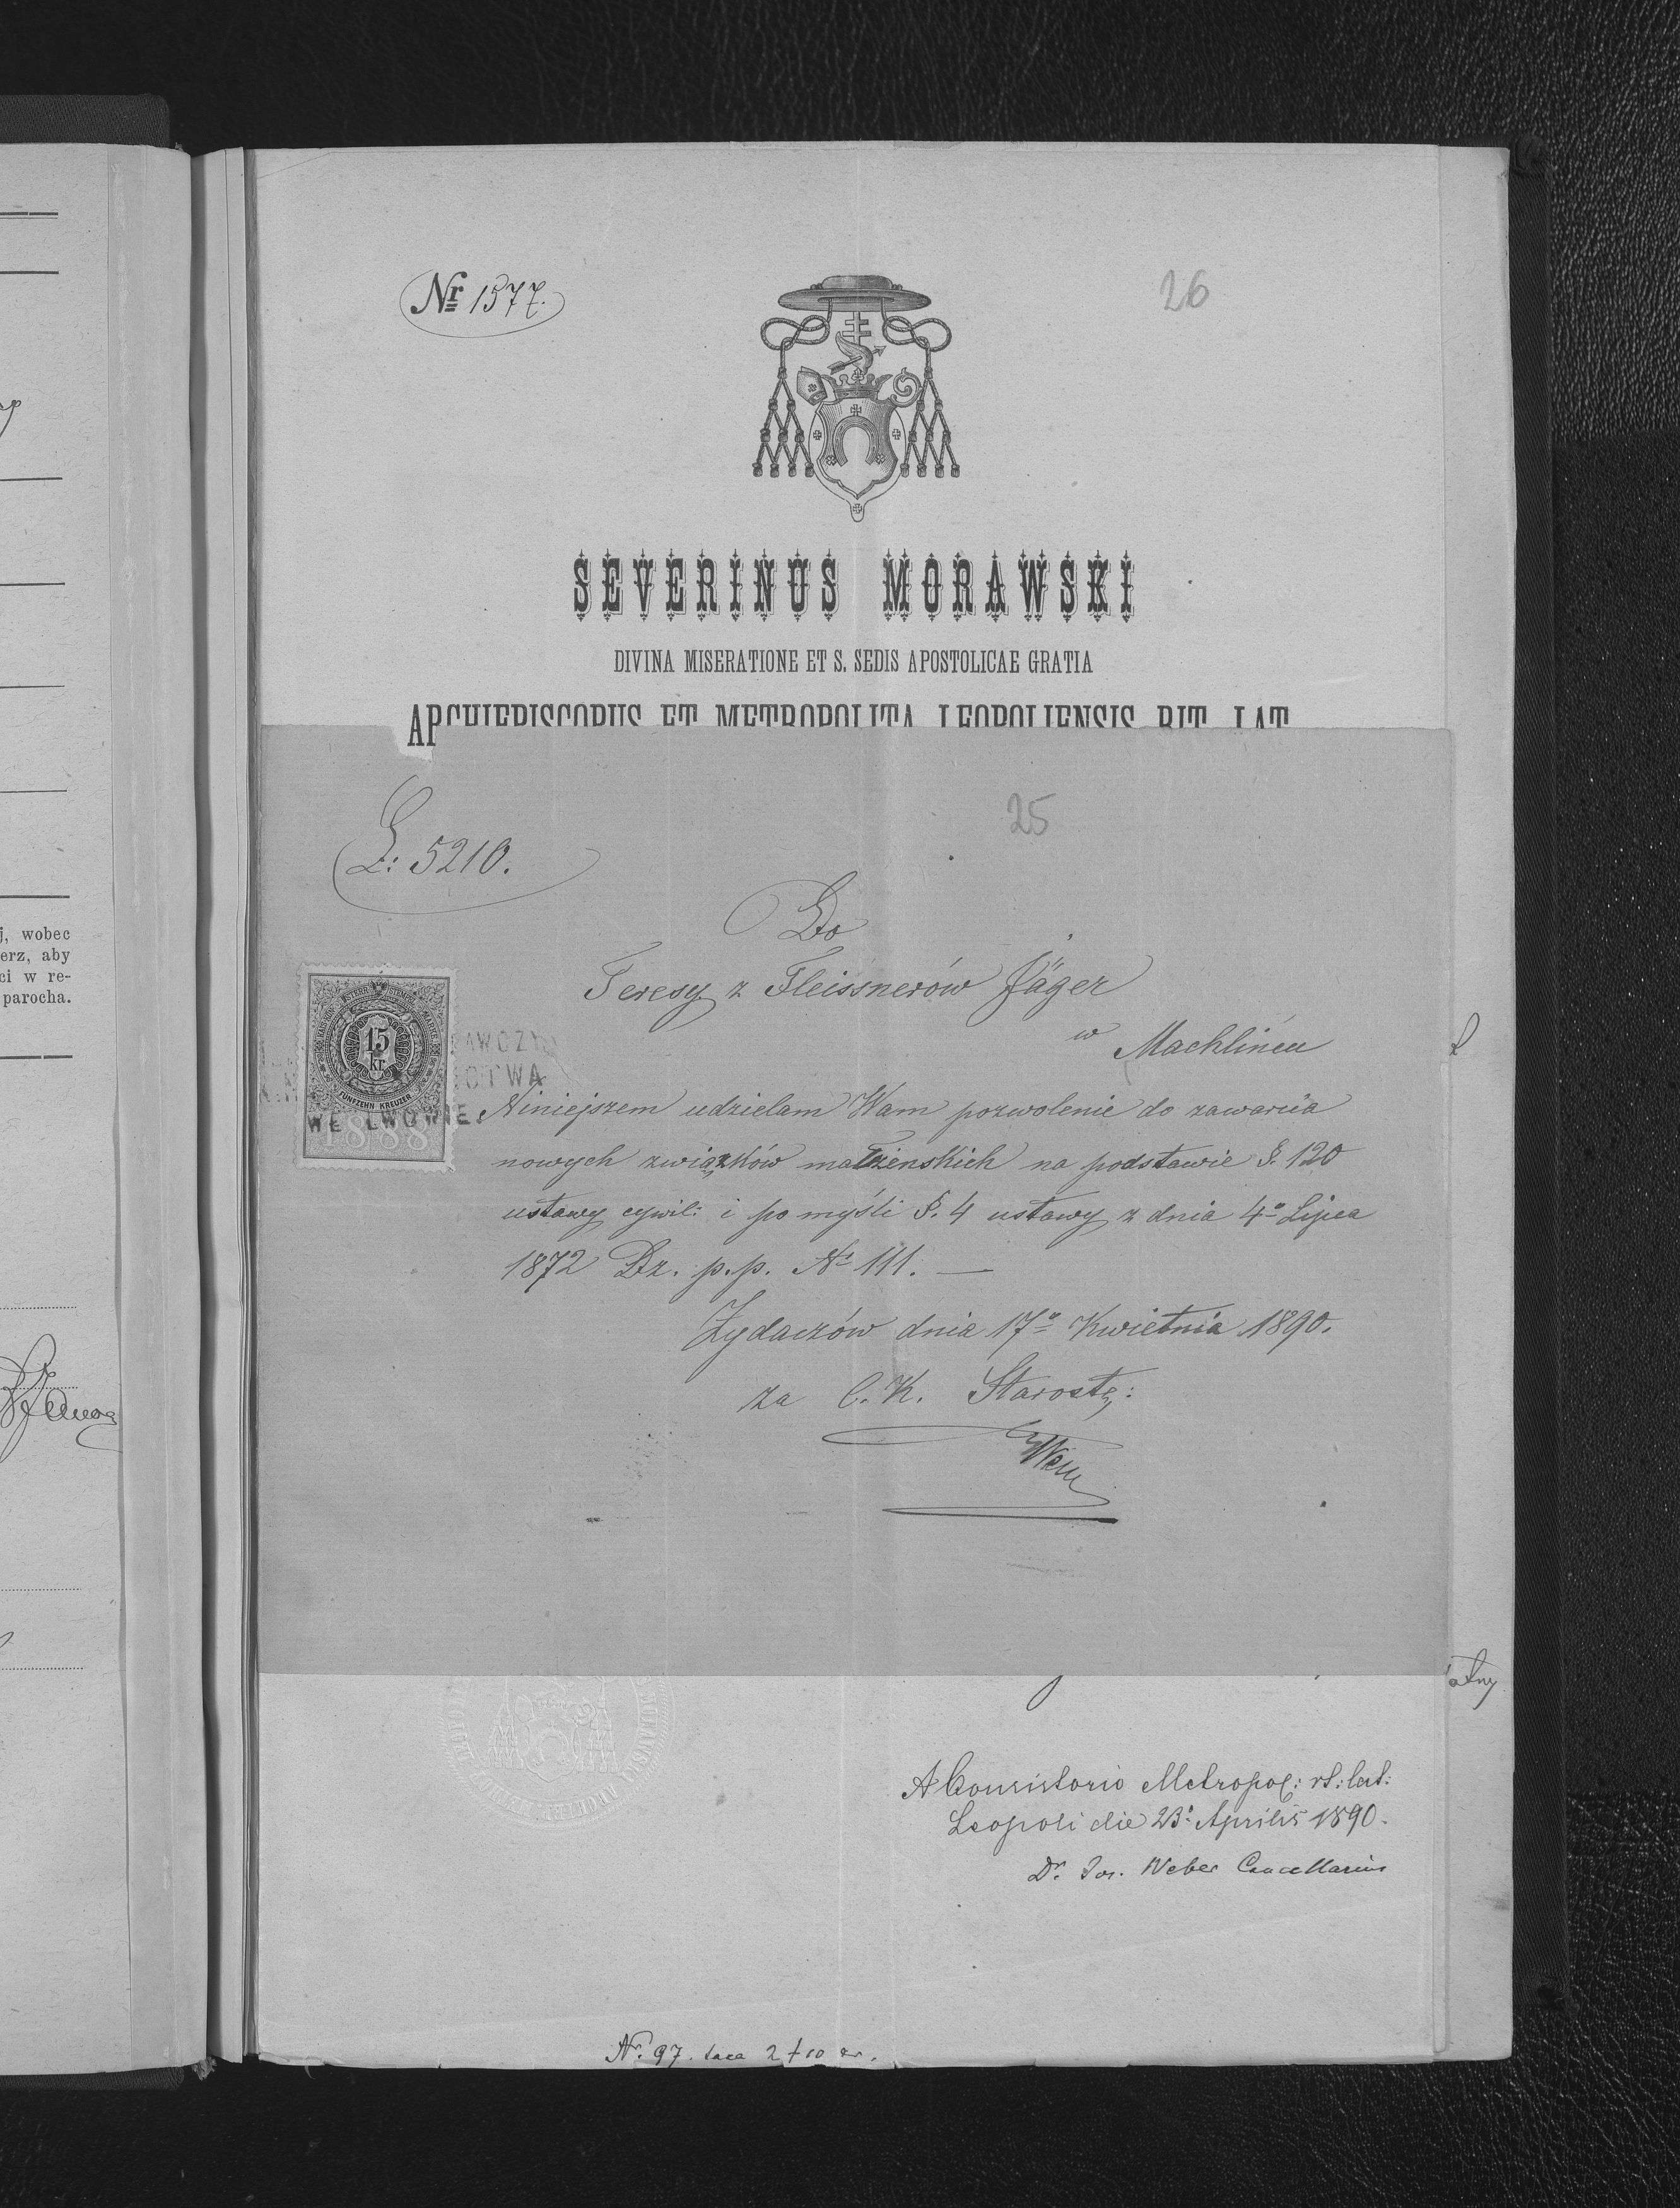 Nr 1577.
26
SEVERINUS MORAWSKI
DIVINA MISERATIONE ET S. SEDIS APOSTOLICAE GRATIA
ARCHIEPISCOPUS ET METROPOLITA LEOPOLIENSIS RIT. LAT.
25
L: 5210.
Do
Teresy z Fleissnerów Jäger
w Machlińcu
15
kr
FÜNFZEHN KREUZER
1888
WE LWOWIE.
Niniejszem udzielam Wam pozwolenie do zawarcia
nowych związków małżenskich na podstawie §. 120
ustawy cywil: i po myśli §. 4 ustawy z dnia 4º Lipca
1872 Dz. p.p. Nr 111. —
Żydaczów dnia 17º Kwietnia 1890.
za C. K. Starostę:
A Consistorio Metropol: rt: lat:
Leopoli die 23º Aprilis 1890.
Dr. Jos. Weber Cancellarius
Nr. 97. taxa 2 f 10 kr.
j, wobec
erz, aby
ci w re-
parocha.